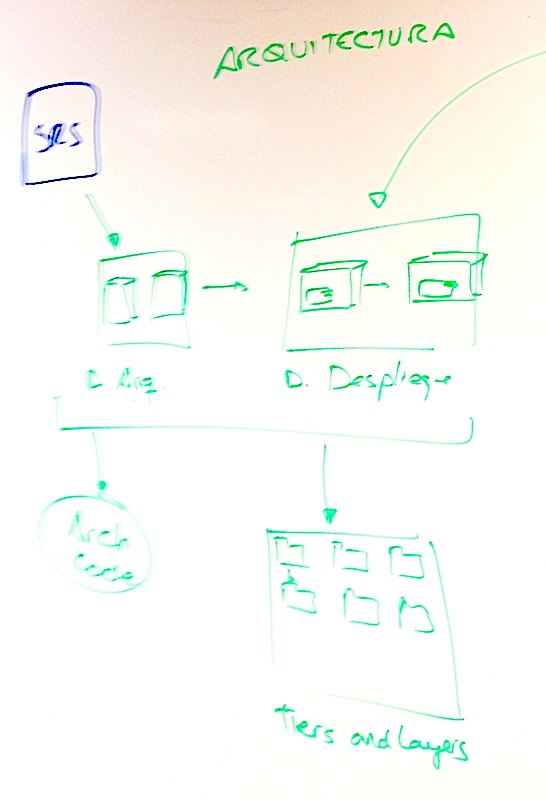 ARQUITECTURA
SRS
D. Arq.
D. Despliegue
Arch
tiers and layers